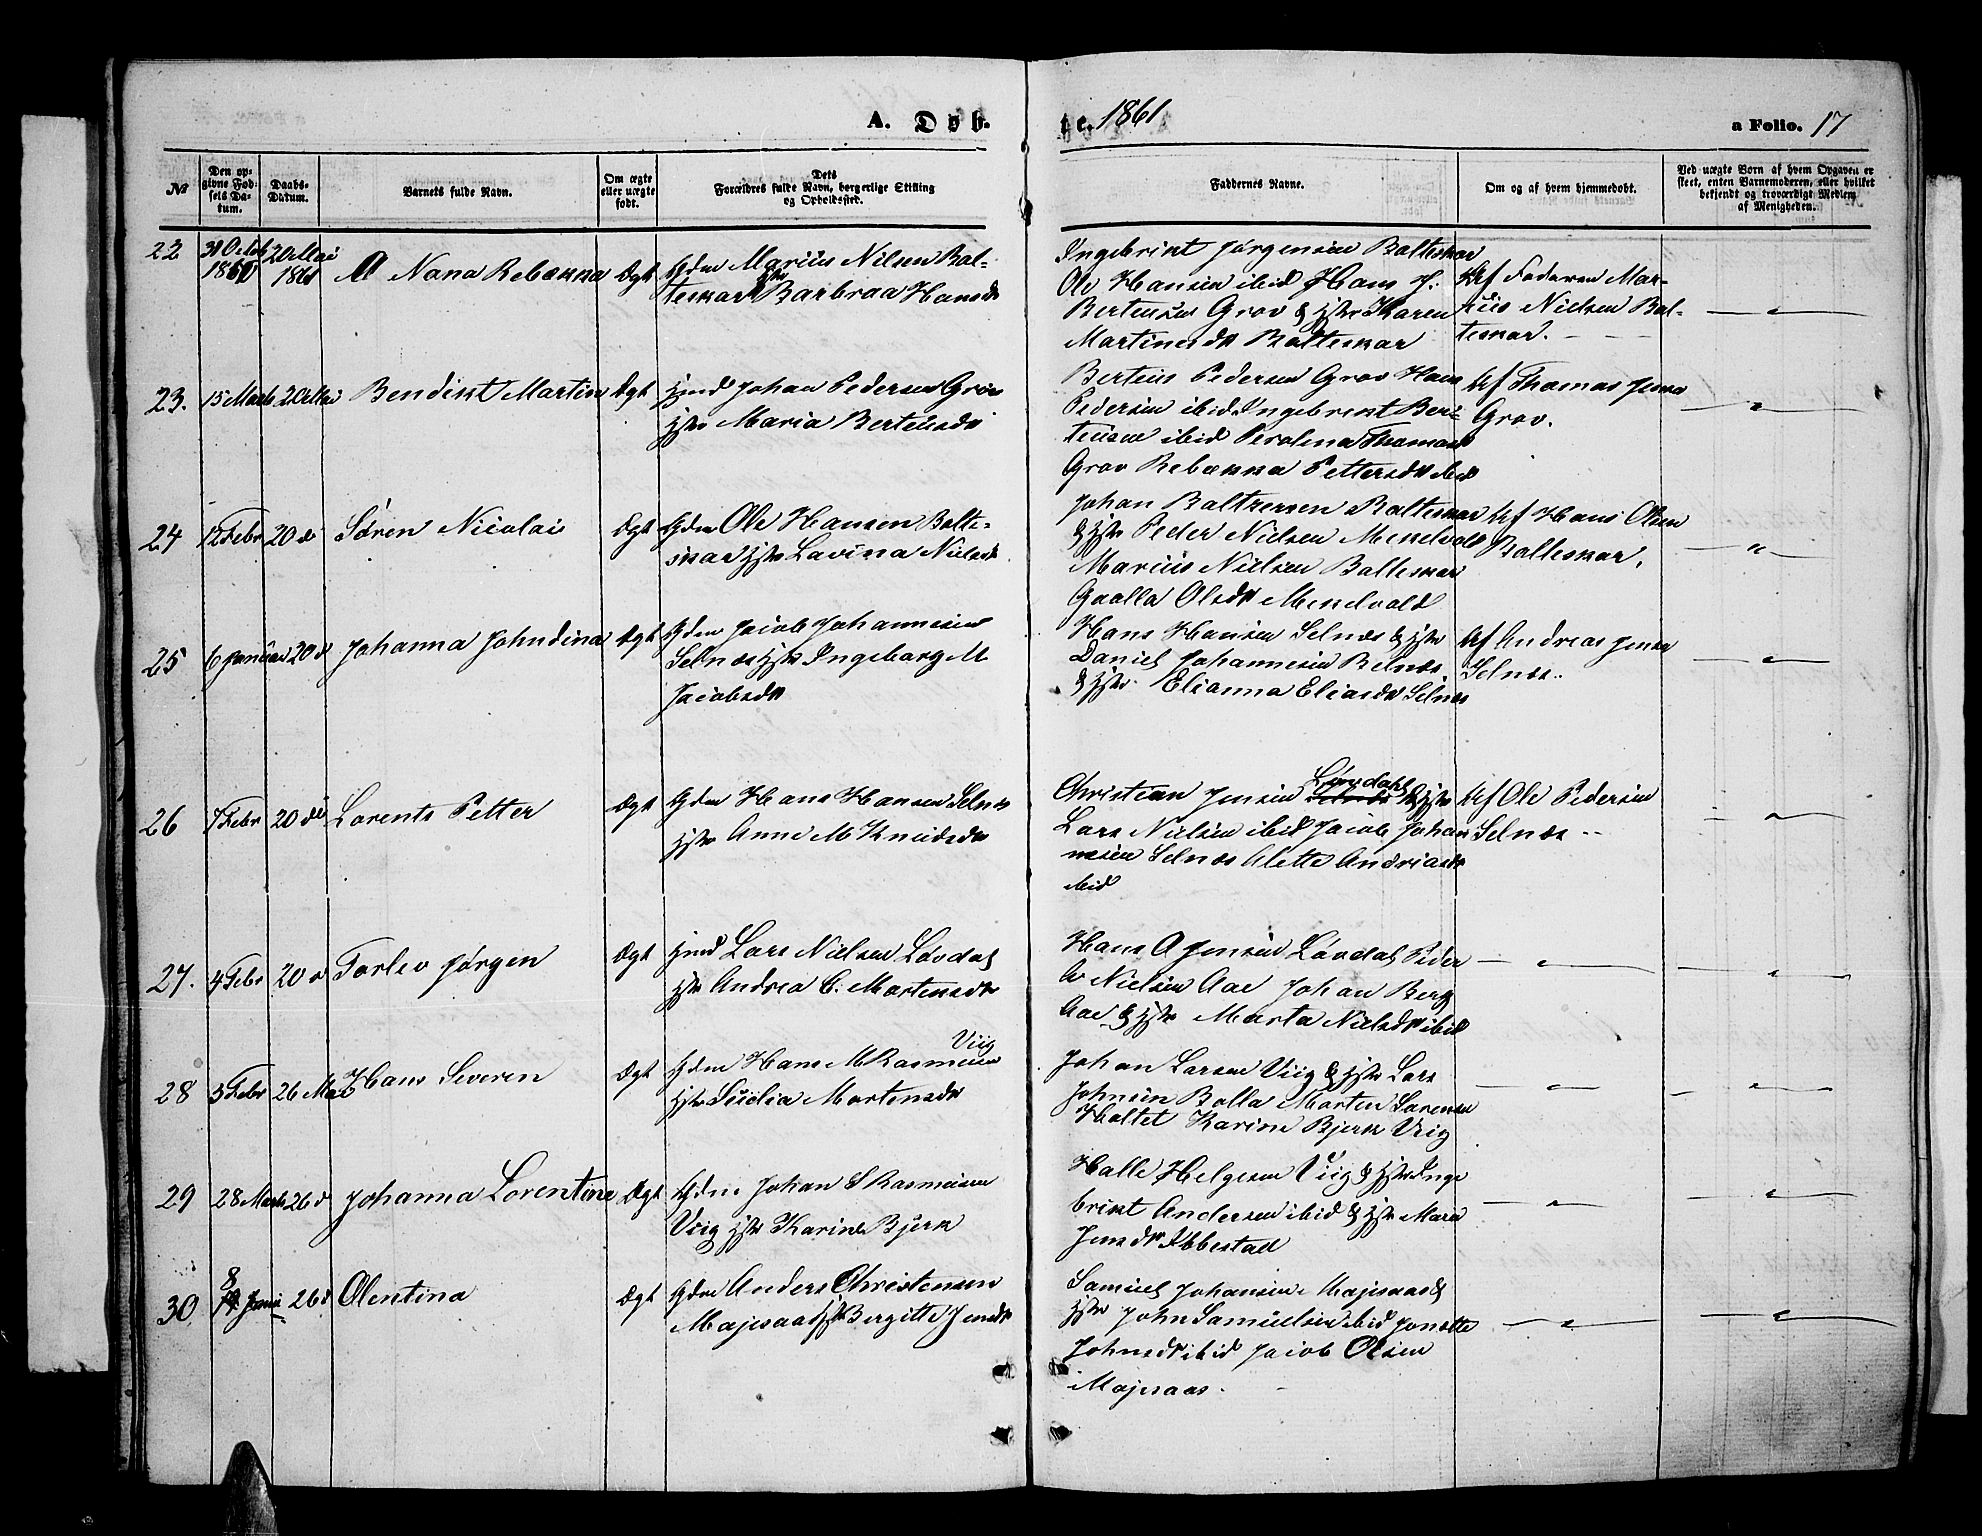 A. Døb-
te. 1861
a Folio. 17
№
Den op-
givne Fød-
sels Da-
tum.
Daabs-
Datum.
Barnets fulde Navn.
Om ægte
eller uægte
født.
Dets
Forældres fulde Navn, borgerlige Stilling
og Opholdssted.
Faddernes Navne.
Om og af hvem hjemmedøbt.
Ved uægte Børn af hvem Opgaven er
skeet, enten Barnemoderen, eller hvilket
bekjendt og troværdigt Medlem
af Menigheden.
22
31 Octob
1860
20 Mai
1861
Nana Rebækka
Ægt
Gdm Marius Nilsen Bal-
teskar Hstr Barbraa Hansdt
Ingebrikt Jørgensen Balteskar
Ole Hansen ibid Hans J.
Bertensen Grov & Hstr Karen
Martinsdt Balteskar
Af Faderen Mar-
tius Nielsen Bal-
teskar.
23.
15 Marts
20 Mai
Bendikt Martin
Ægt
Hmd Johan Pedersen Grov
Hstr Maria Berteusdt
Berteus Pedersen Grov Hans
Pedersen ibid Ingebrikt Ber-
teusen ibid Perolena Thomasdt
Grov Rebækka Pettersdt ibid
Af Thomas Jensen
Grov.
24
12 Febr
20 d
Søren Nicolai
Ægt
Gdm Ole Hansen Balte-
skar Hstr Lavina Nielsdt
Johan Baltzersen Balteskar
& Hstr Peder Nielsen Menelvold
Marius Nielsen Balteskar
Gaalla Olsdt Menelvold
Af Hans Olsen
Balteskar.
25
6 Januar
20 d
Johanna Johndina
Ægt
Gdm Jacob Johannesen
Selnæs Hstr Ingeborg M
Jacobsdt
Hans Hansen Selnæs & Hstr
Daniel Johannesen Selnæs
& Hstr. Elianna Eliasdt Selnæs
Af Andreas Jensen
Selnæs..
26
7 Febr
20 de
Lorents Petter
Ægt
Gdm Hans Hansen Selnæs
Hstr Anne M Knudsdt
Christian Jensen Løvdahl & Hstr
Lars Nielsen ibid Jacob Johan
nesen Selnæs Alette Andriasdt
ibid
Af Ole Pedersen
Selnæs
27.
4 Febr
20 d
Torlev Jørgen
Ægt
Hmd Lars Nielsen Løvdal
Hstr Andrea C. Mortensdt
Hans A Jensen Løvdal Peder
A Nielsen Aae Johan Berg
Aae & Hstr Marta Nielsdt ibid
28
5 Febr
26 Mai
Hans Severen
Ægt
Gdm Hans M Rasmusen Viig
Hstr Lucia Mortensdt
Johan Larsen Viig & Hstr Lars
Johnsen Bolla Morten Sørensen
Holtet Karine Bjerk Viig
29
28 Marts
26 d
Johanna Lorentine
Ægt
Gdm. Johan S Rasmusen
Viig Hstr Karine Bjerk
Halle Helgesen Viig & Hstr Inge
brikt Andersen ibid & Hstr Maren
Jensdt Ibbestad
30
8
26 d
Olentina
Ægt
Gdm Anders Christensen
Majesaas Hstr Bergitte Jensdt
Samuel Johansen Majesaas &
Hstr John Samuelsen ibid Jonette
Johnsdt ibid Jacob Olsen
Majesaas.